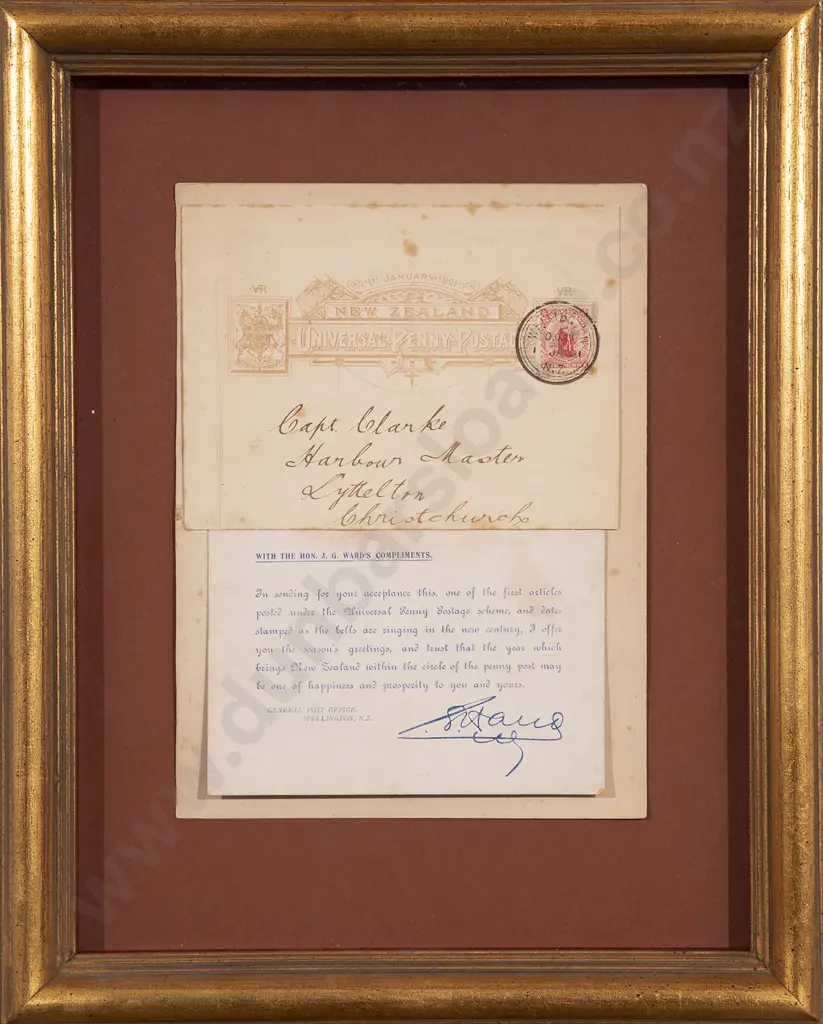 1ST JANUARY 1901
VR VR
NEW ZEALAND
UNIVERSAL PENNY POSTAGE
N.Z.
Capt. Clarke
Harbour Master
Lyttelton
Christchurch
WITH THE HON. J. G. WARD'S COMPLIMENTS.
In sending for your acceptance this, one of the first articles
posted under the Universal Penny Postage scheme, and date-
stamped as the bells are ringing in the new century, I offer
you the season's greetings, and trust that the year which
brings New Zealand within the circle of the penny post may
be one of happiness and prosperity to you and yours.
GENERAL POST OFFICE,
WELLINGTON, N.Z.
www.dunbarsloane.co.nz